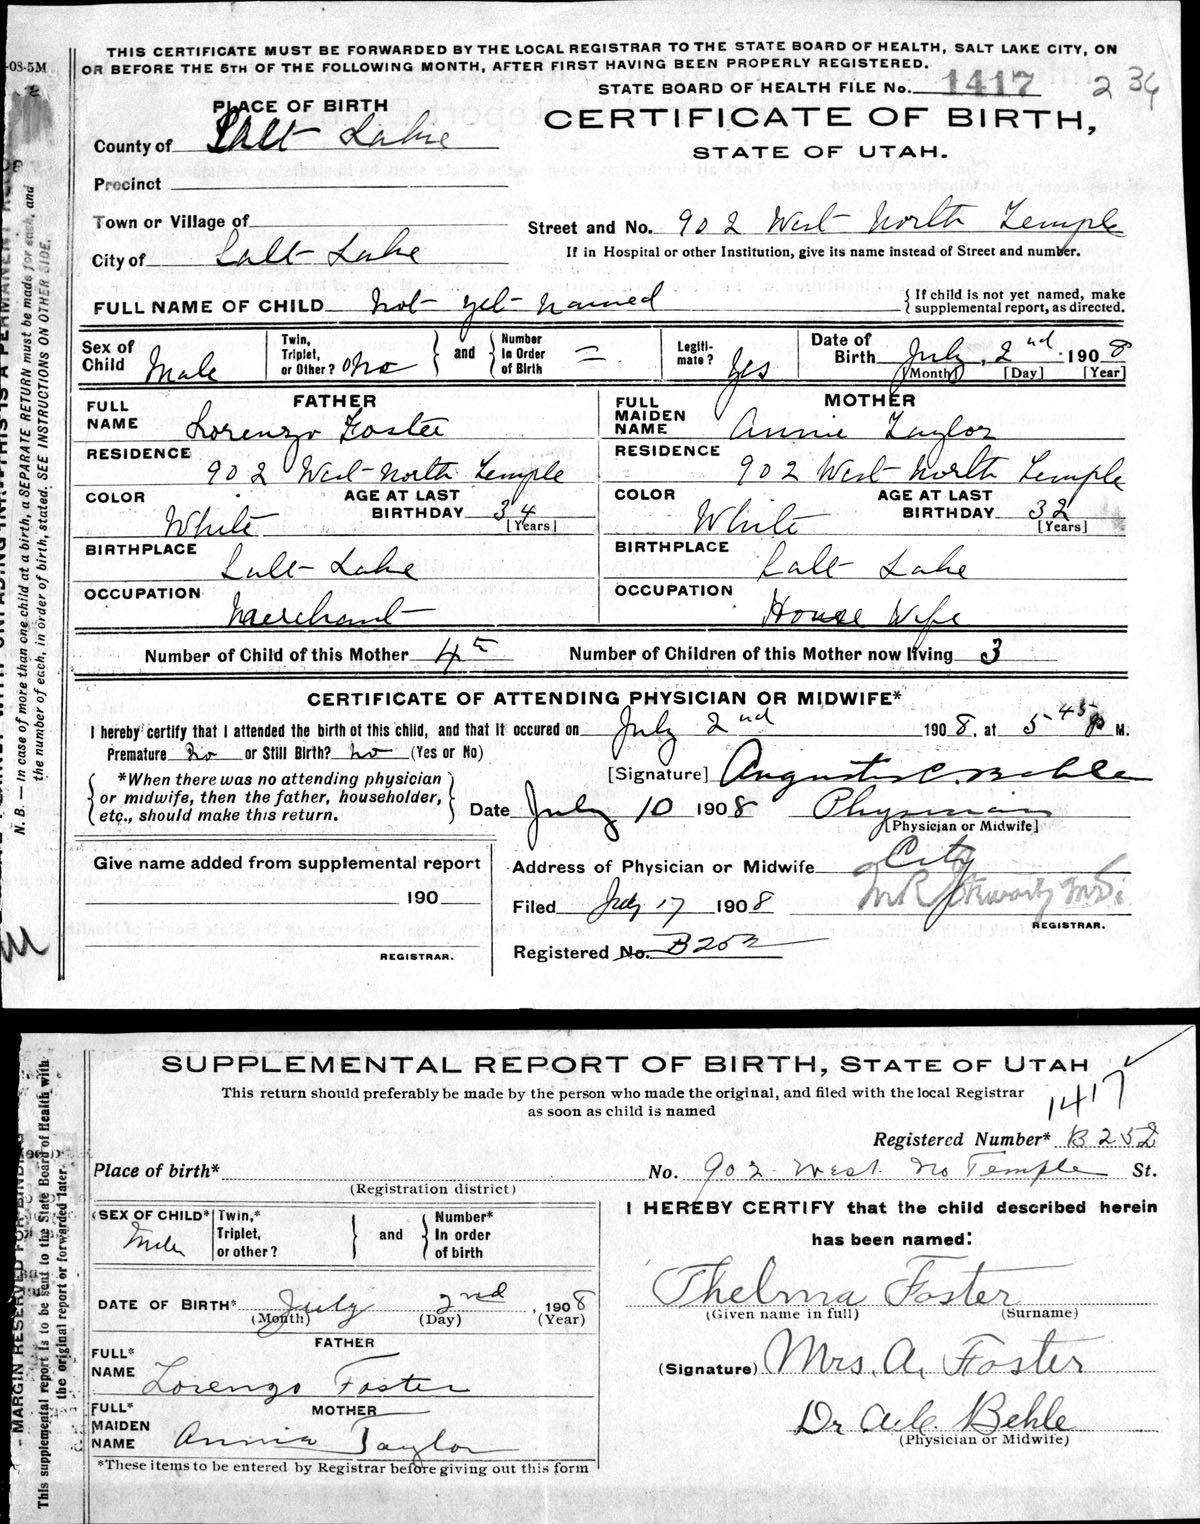 THIS CERTIFICATE MUST BE FORWARDED BY THE LOCAL REGISTRAR TO THE STATE BOARD OF HEALTH, SALT LAKE CITY, ON
OR BEFORE THE 5TH OF THE FOLLOWING MONTH, AFTER FIRST HAVING BEEN PROPERLY REGISTERED.
-08-5M
STATE BOARD OF HEALTH FILE No. 1417 234
PLACE OF BIRTH
CERTIFICATE OF BIRTH,
STATE OF UTAH.
County of Salt Lake
Precinct
Town or Village of
Street and No. 902 West North Temple
City of Salt Lake
If in Hospital or other Institution, give its name instead of Street and number.
FULL NAME OF CHILD not yet named
If child is not yet named, make
supplemental report, as directed.
Sex of Child Male
Twin, Triplet, or Other? no
and
Number in Order of Birth =
Legiti-mate? Yes
Date of Birth July 2nd 1908
[Month] [Day] [Year]
FATHER
FULL NAME Lorenzo Foster
RESIDENCE 902 West North Temple
COLOR White
AGE AT LAST BIRTHDAY 34
[Years]
BIRTHPLACE Salt Lake
OCCUPATION Merchant
MOTHER
FULL MAIDEN NAME Annie Taylor
RESIDENCE 902 West North Temple
COLOR White
AGE AT LAST BIRTHDAY 32
[Years]
BIRTHPLACE Salt Lake
OCCUPATION House Wife
Number of Child of this Mother 4th Number of Children of this Mother now living 3
CERTIFICATE OF ATTENDING PHYSICIAN OR MIDWIFE*
I hereby certify that I attended the birth of this child, and that it occured on July 2nd 1908, at 5-45 P M.
Premature no or Still Birth? no (Yes or No)
*When there was no attending physician
or midwife, then the father, householder,
etc., should make this return.
[Signature] Augustus C. Behle
Date July 10 1908 Physician
[Physician or Midwife]
Give name added from supplemental report
190
REGISTRAR.
Address of Physician or Midwife City
Filed July 17 1908
REGISTRAR.
Registered No. B252
N. B. — In case of more than one child at a birth, a SEPARATE RETURN must be made for each, and
the number of each, in order of birth, stated. SEE INSTRUCTIONS ON OTHER SIDE.
SUPPLEMENTAL REPORT OF BIRTH, STATE OF UTAH
This return should preferably be made by the person who made the original, and filed with the local Registrar
as soon as child is named
1417
Registered Number* B252
Place of birth* No. 902 West. No Temple St.
(Registration district)
SEX OF CHILD* Male
Twin,* Triplet, or other?
and
Number* In order of birth
DATE OF BIRTH* July 2nd, 1908
(Month) (Day) (Year)
FATHER
FULL* NAME Lorenzo Foster
MOTHER
FULL* MAIDEN NAME Annie Taylor
*These items to be entered by Registrar before giving out this form
I HEREBY CERTIFY that the child described herein
has been named:
Thelma Foster
(Given name in full) (Surname)
(Signature) Mrs. A. Foster
Dr A.C. Behle
(Physician or Midwife)
MARGIN RESERVED FOR BINDING
This supplemental report is to be sent to the State Board of Health with
the original report or forwarded later